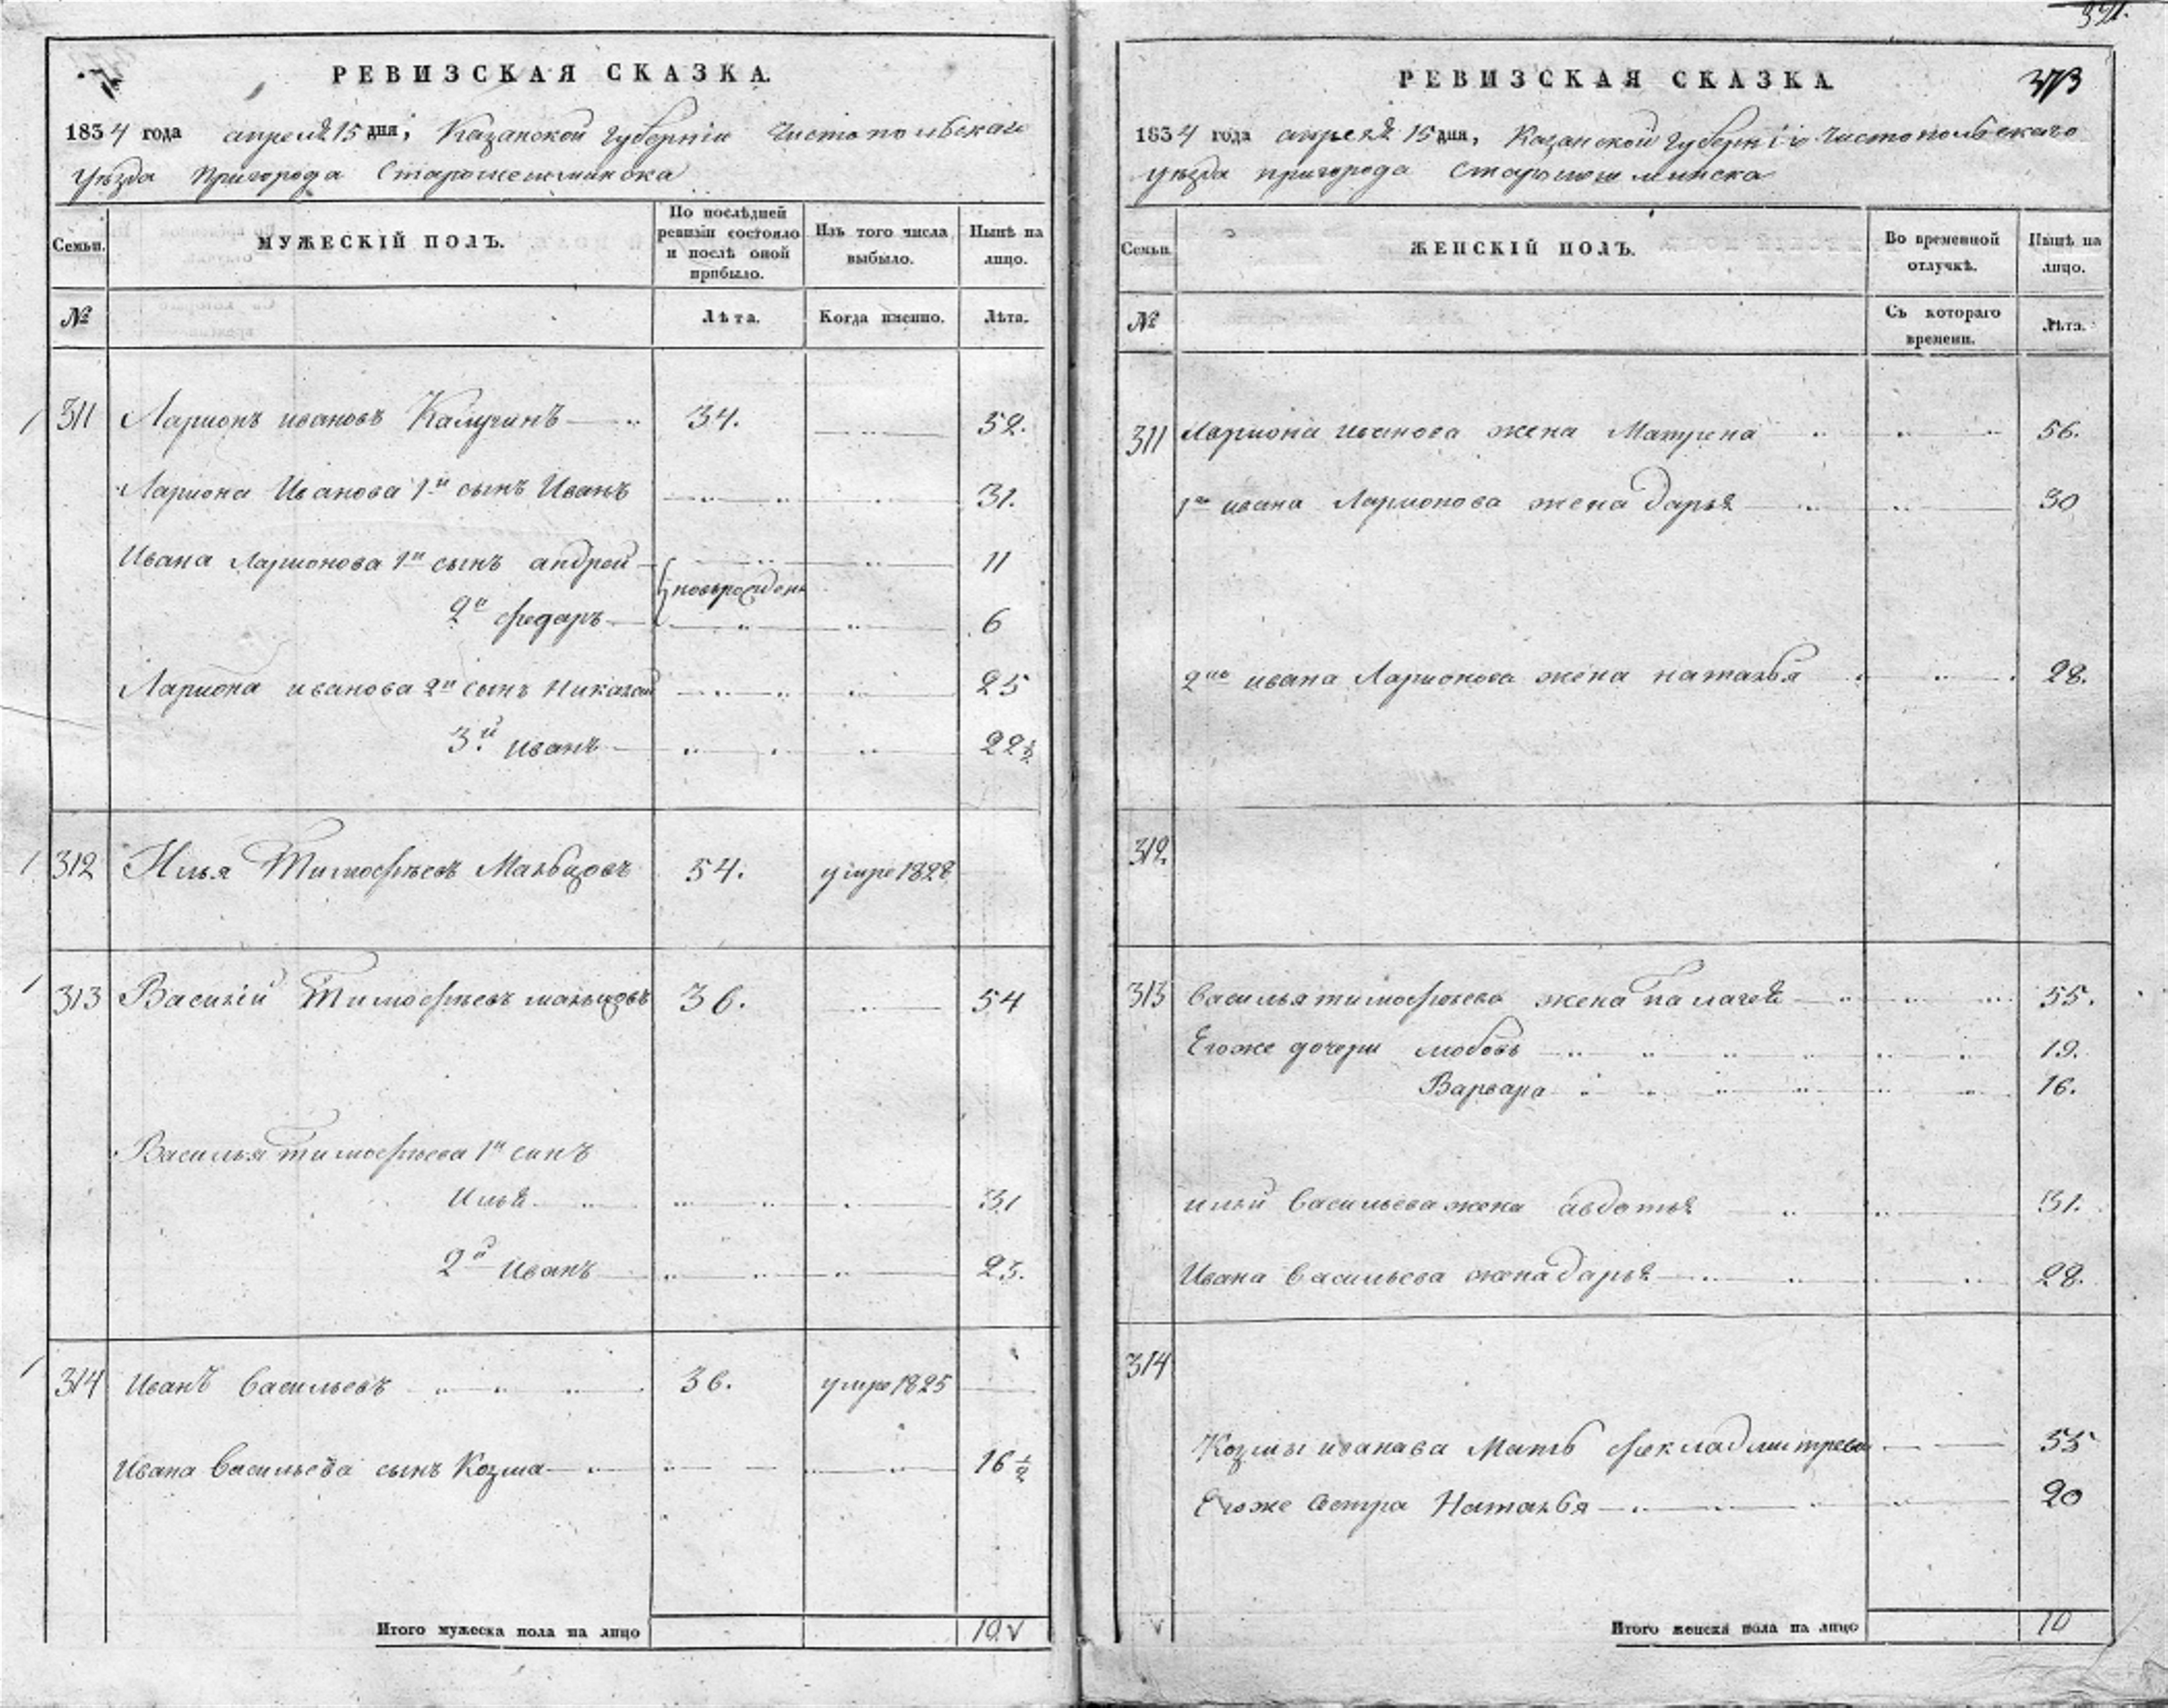 РЕВИЗСКАЯ СКАЗКА.
1834 года апреля 15 дня, Казанской Губерніи Чистопольскаго
уѣзда Пригорода Старошешминска
Семьи.
МУЖЕСКІЙ ПОЛЪ.
По послѣдней ревизіи состояло и послѣ оной прибыло.
Изъ того числа выбыло.
Нынѣ на лицо.
№
Лѣта.
Когда именно.
Лѣта.
311 Ларионъ ивановъ Калугинъ 34. 52.
Лариона Иванова 1й сынъ Иванъ 31.
Ивана Ларионова 1й сынъ андрей 11
новорожден
2й Федаръ 6
Лариона иванова 2й сынъ Николай 25
3й иванъ 22½
312 Илья Тимофѣевъ Мальцовъ 54. умре 1828
313 Василій Тимофѣевъ мальцовъ 36. 54
Василья тимофѣева 1й синъ
Илья 31
2й Иванъ 23.
314 Иванъ Васильевъ 36. умре 1825
Ивана Васильева сынъ Козма 16½
Итого мужеска пола на лицо 10
373
РЕВИЗСКАЯ СКАЗКА
1834 года апреля 15 дня, Казанской Губерніи Чистопольскаго
уѣзда пригорода Старошешминска
Семьи.
ЖЕНСКІЙ ПОЛЪ.
Во временной отлучкѣ.
Нынѣ на лицо.
№
Съ котораго времени.
Лѣта.
311 Лариона иванова жена Матрена 56.
1го ивана Ларионова жена дарья 30
2го ивана Ларионова жена наталья 28.
312.
313 Василья тимофѣева жена палагея 55.
Егоже дочери любовь 19.
Варвара 16.
ильи Васильева жена авдотья 31.
Ивана Васильева жена дарья 28.
314
Козмы иванава Мать фекла дмитрева 55
Егоже Сестра Наталья 20
Итого женска пола на лицо 10